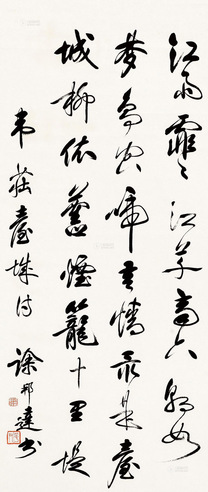 江雨霏〻江草齊六朝如
夢鳥空啼無情最是臺
城柳依舊煙籠十里堤
韋莊臺城詩
徐邦達書